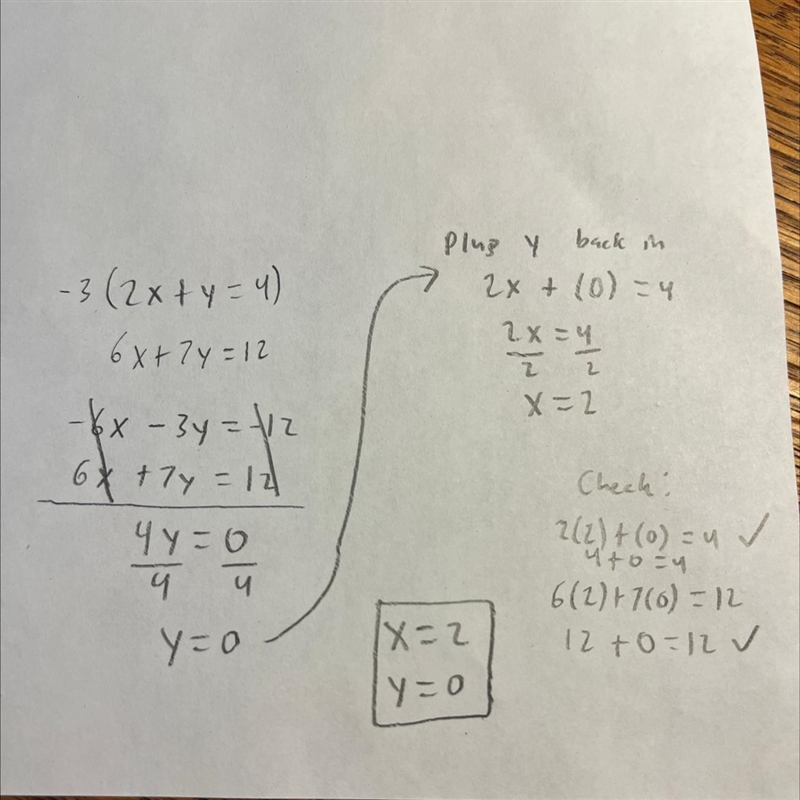 -3(2x+y=4)
6x+7y=12
-6x -3y = -12
6x +7y = 12
4y = 0
4 4
y=0
Plug y back in
2x + (0) = 4
2x = 4
2 2
x=2
Check:
2(2)+(0)=4 ✓
4+0=4
6(2)+7(0)=12
12+0=12 ✓
x=2
y=0